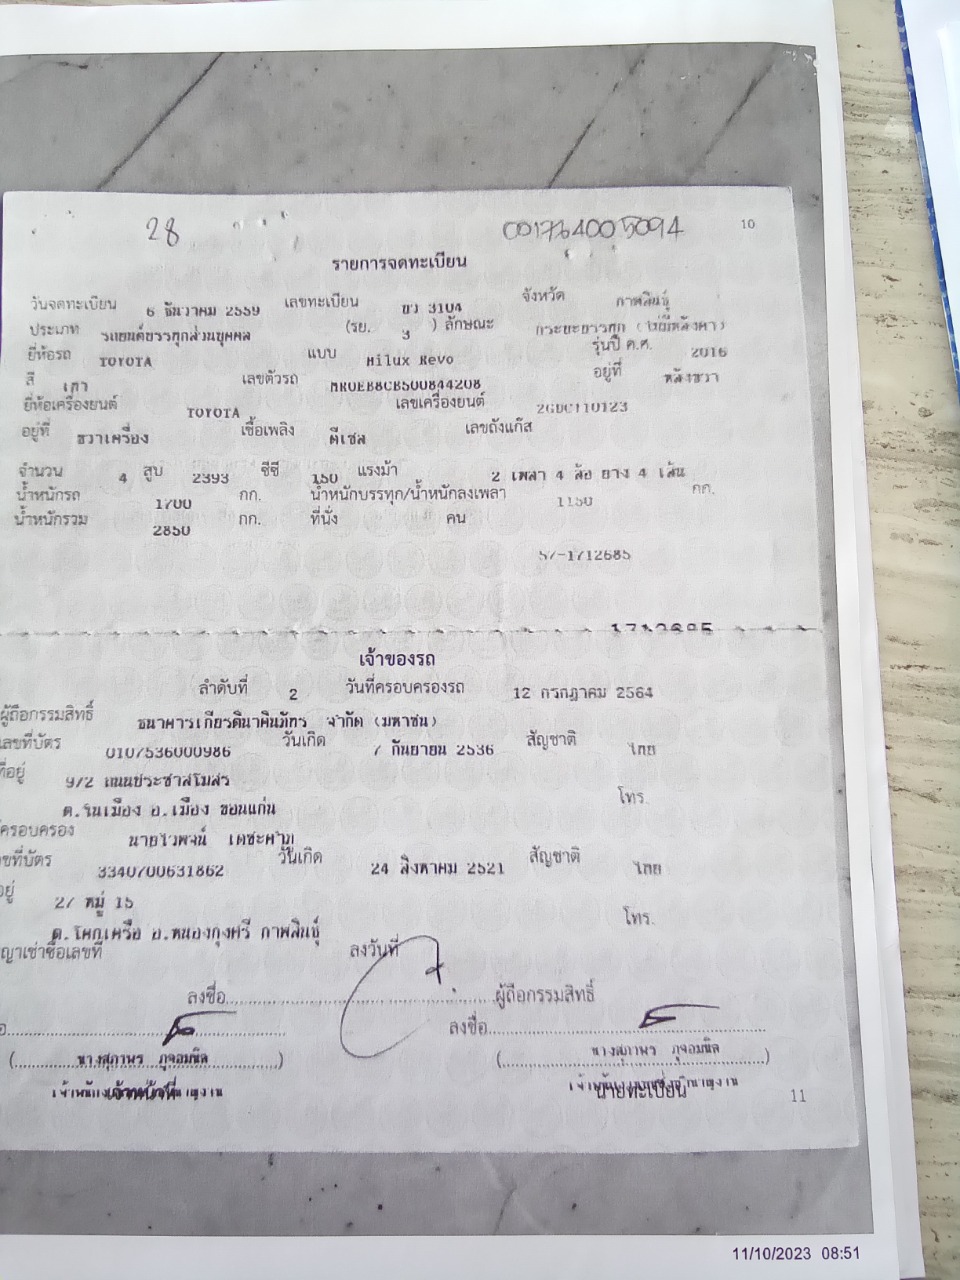 28 001764005094 10
รายการจดทะเบียน
วันจดทะเบียน 6 ธันวาคม 2559 เลขทะเบียน ขว 3104 จังหวัด กาฬสินธุ์
ประเภท รถยนต์บรรทุกส่วนบุคคล (รย. 3 ) ลักษณะ กระบะบรรทุก (ไม่มีหลังคา)
ยี่ห้อรถ TOYOTA แบบ Hilux Revo รุ่นปี ค.ศ. 2016
สี เทา เลขตัวรถ MR0EB8CB500844208 อยู่ที่ หลังขวา
ยี่ห้อเครื่องยนต์ TOYOTA เลขเครื่องยนต์ 2GDC110123
อยู่ที่ ขวาเครื่อง เชื้อเพลิง ดีเซล เลขถังแก๊ส
จำนวน 4 สูบ 2393 ซีซี 150 แรงม้า 2 เพลา 4 ล้อ ยาง 4 เส้น
น้ำหนักรถ 1700 กก. น้ำหนักบรรทุก/น้ำหนักลงเพลา 1150 กก.
น้ำหนักรวม 2850 กก. ที่นั่ง คน
57-1712685
เจ้าของรถ
ลำดับที่ 2 วันที่ครอบครองรถ 12 กรกฎาคม 2564
ผู้ถือกรรมสิทธิ์ ธนาคารเกียรตินาคินภัทร จำกัด (มหาชน)
เลขที่บัตร 0107536000986 วันเกิด 7 กันยายน 2536 สัญชาติ ไทย
ที่อยู่ 9/2 ถนนประชาสโมสร
ต.ในเมือง อ.เมือง ขอนแก่น โทร.
ครอบครอง นายไวพจน์ เดชะคำภู
ขที่บัตร 3340700631862 วันเกิด 24 สิงหาคม 2521 สัญชาติ ไทย
อยู่ 27 หมู่ 15
ต.โคกเครือ อ.หนองกุงศรี กาฬสินธุ์ โทร.
ญาเช่าซื้อเลขที่ ลงวันที่
ลงชื่อ ผู้ถือกรรมสิทธิ์
ลงชื่อ
( นางสุภาพร ภูจอมนิล ) ( นางสุภาพร ภูจอมนิล )
เจ้าหน้าที่ นายทะเบียน
11
11/10/2023 08:51